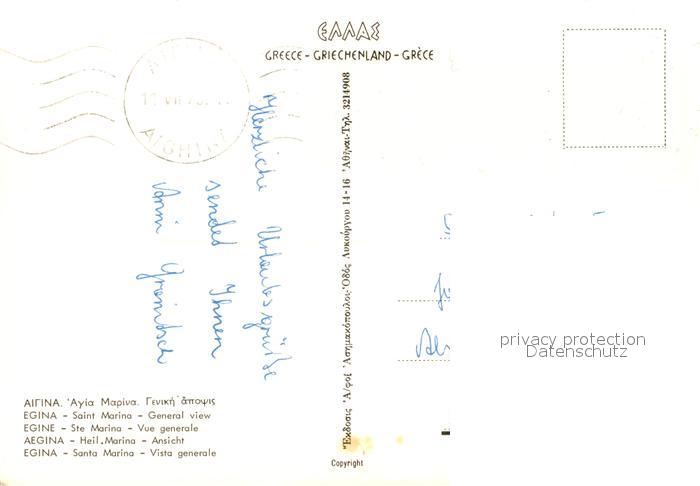 ΕΛΛΑΣ
GREECE - GRIECHENLAND - GRÈCE
AIGHINA
Herzliche Urlaubsgrüße
sendet Ihnen
Anni
Ἔκδοσις Ἀ/φοὶ Ἀσημακόπουλοι-Ὁδὸς Λυκούργου 14-16 Ἀθῆναι-Τηλ. 3214908
privacy protection
Datenschutz
ΑΙΓΙΝΑ. Ἁγία Μαρίνα. Γενικὴ ἄποψις
EGINA - Saint Marina - General view
EGINE - Ste Marina - Vue generale
AEGINA - Heil. Marina - Ansicht
EGINA - Santa Marina - Vista generale
Copyright